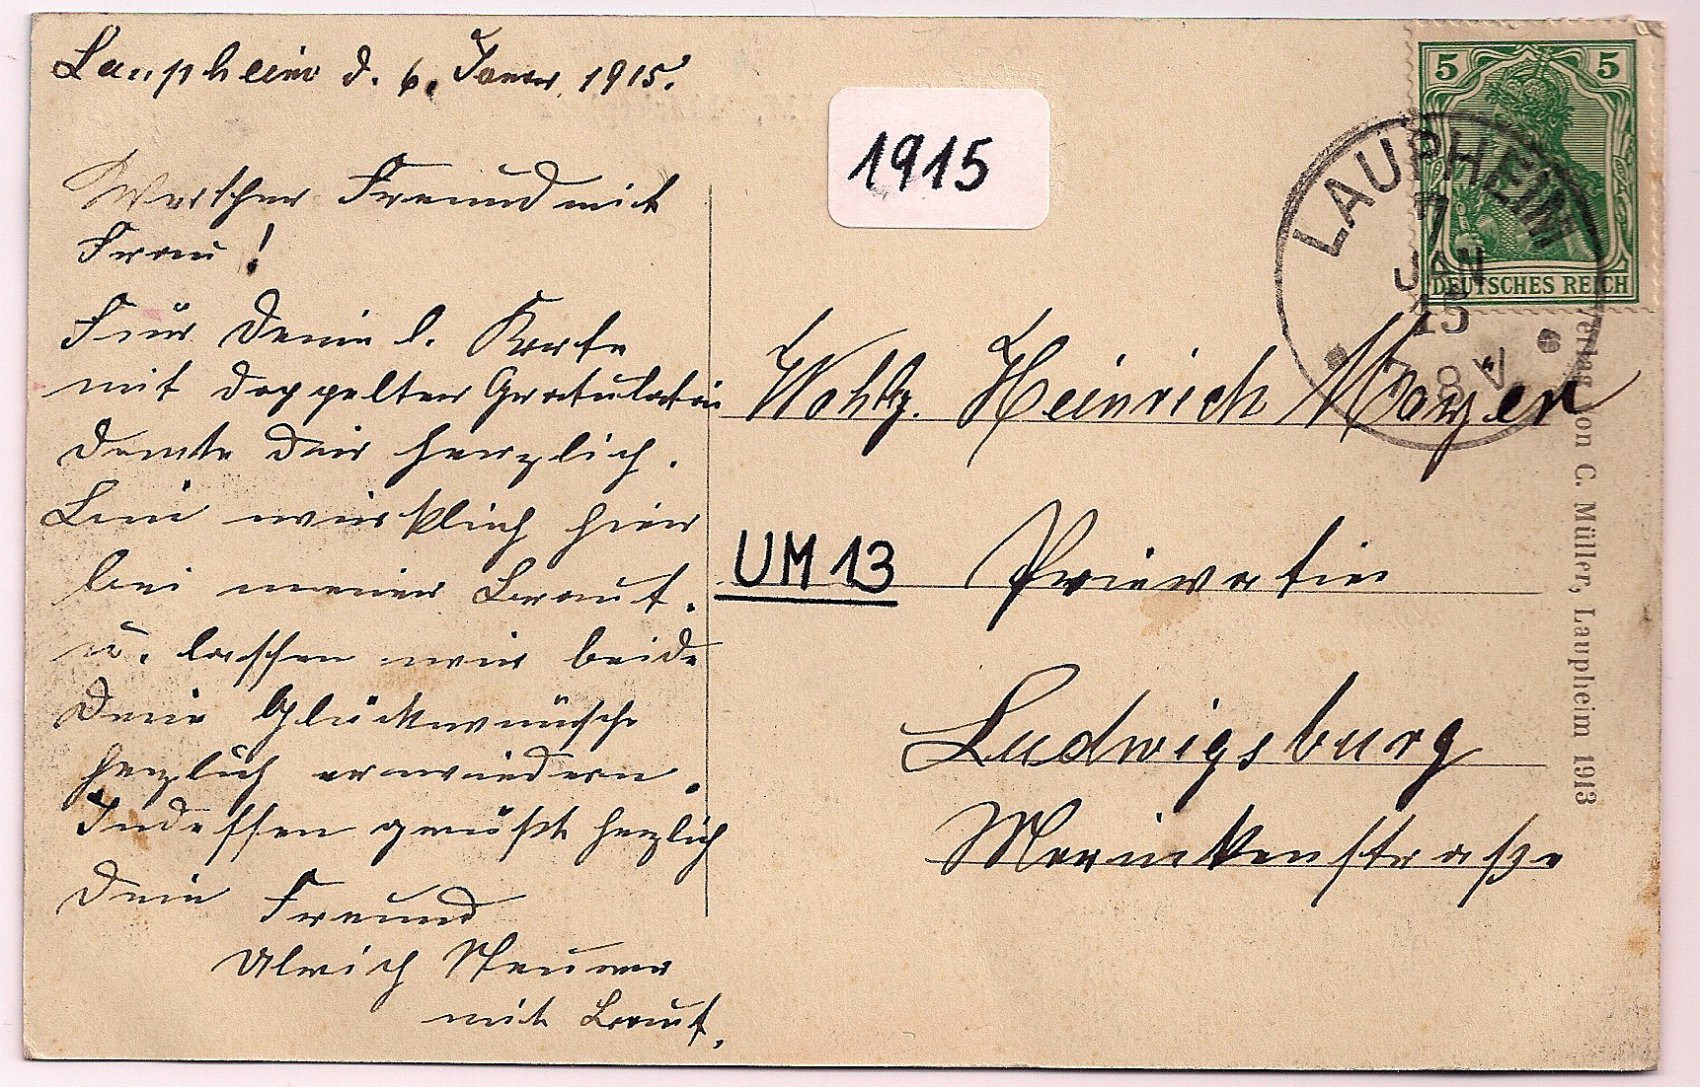 Laupheim d. 6. Januar 1915.
Werther Freund mit
Frau!
Für Deine l. Karte
mit doppelter Gratulation
danke Dir herzlich.
Bin wirklich hier
bei meiner Braut.
u. lassen wir beide
Deine Glückwünsche
herzlich erwiedern.
Indessen grüßt herzlich
Dein Freund
Ulrich
mit Braut.
1915
5 5
DEUTSCHES REICH
LAUPHEIM
7
JAN
15
8 V
Wohlg. Heinrich Mayer
UM 13
Privatier
Ludwigsburg
Verlag von C. Müller, Laupheim 1913